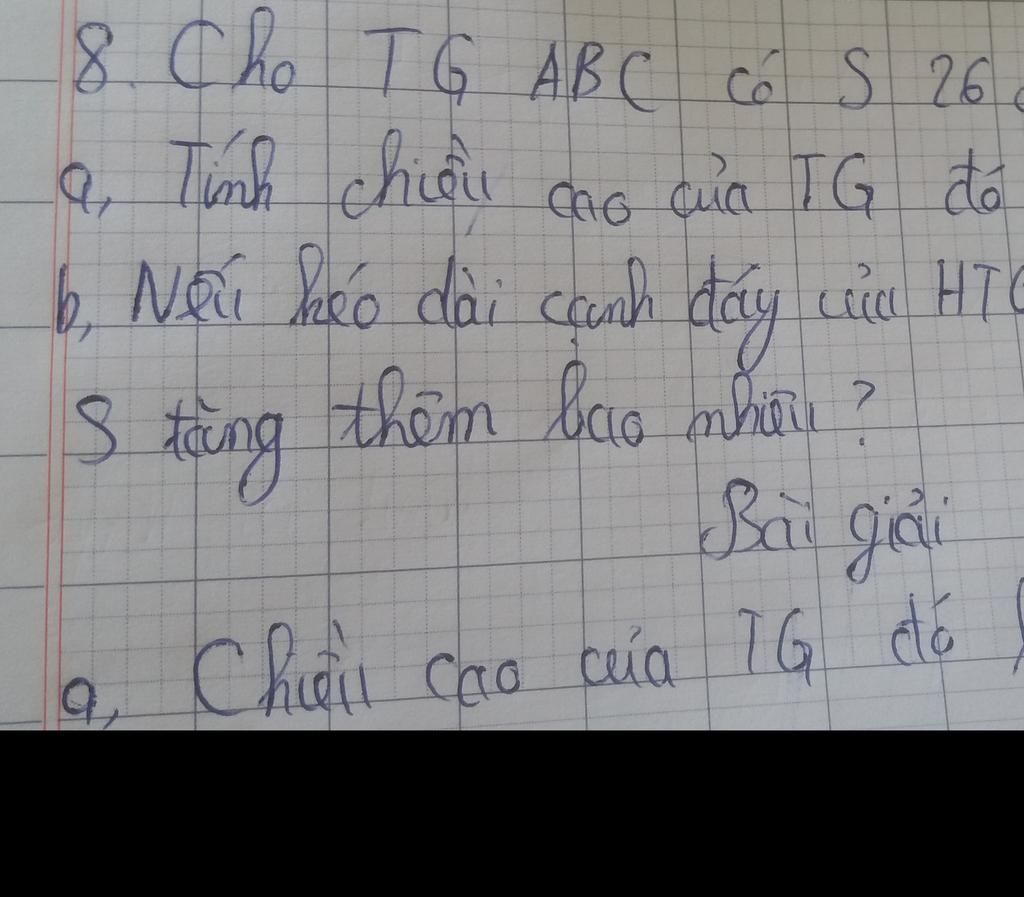 8. Cho TG ABC có S 26
a, Tính chiều cao của TG đó
b, Nếu kéo dài cạnh đáy của HTG
S tăng thêm bao nhiêu?
Bài giải
a, Chiều cao của TG đó